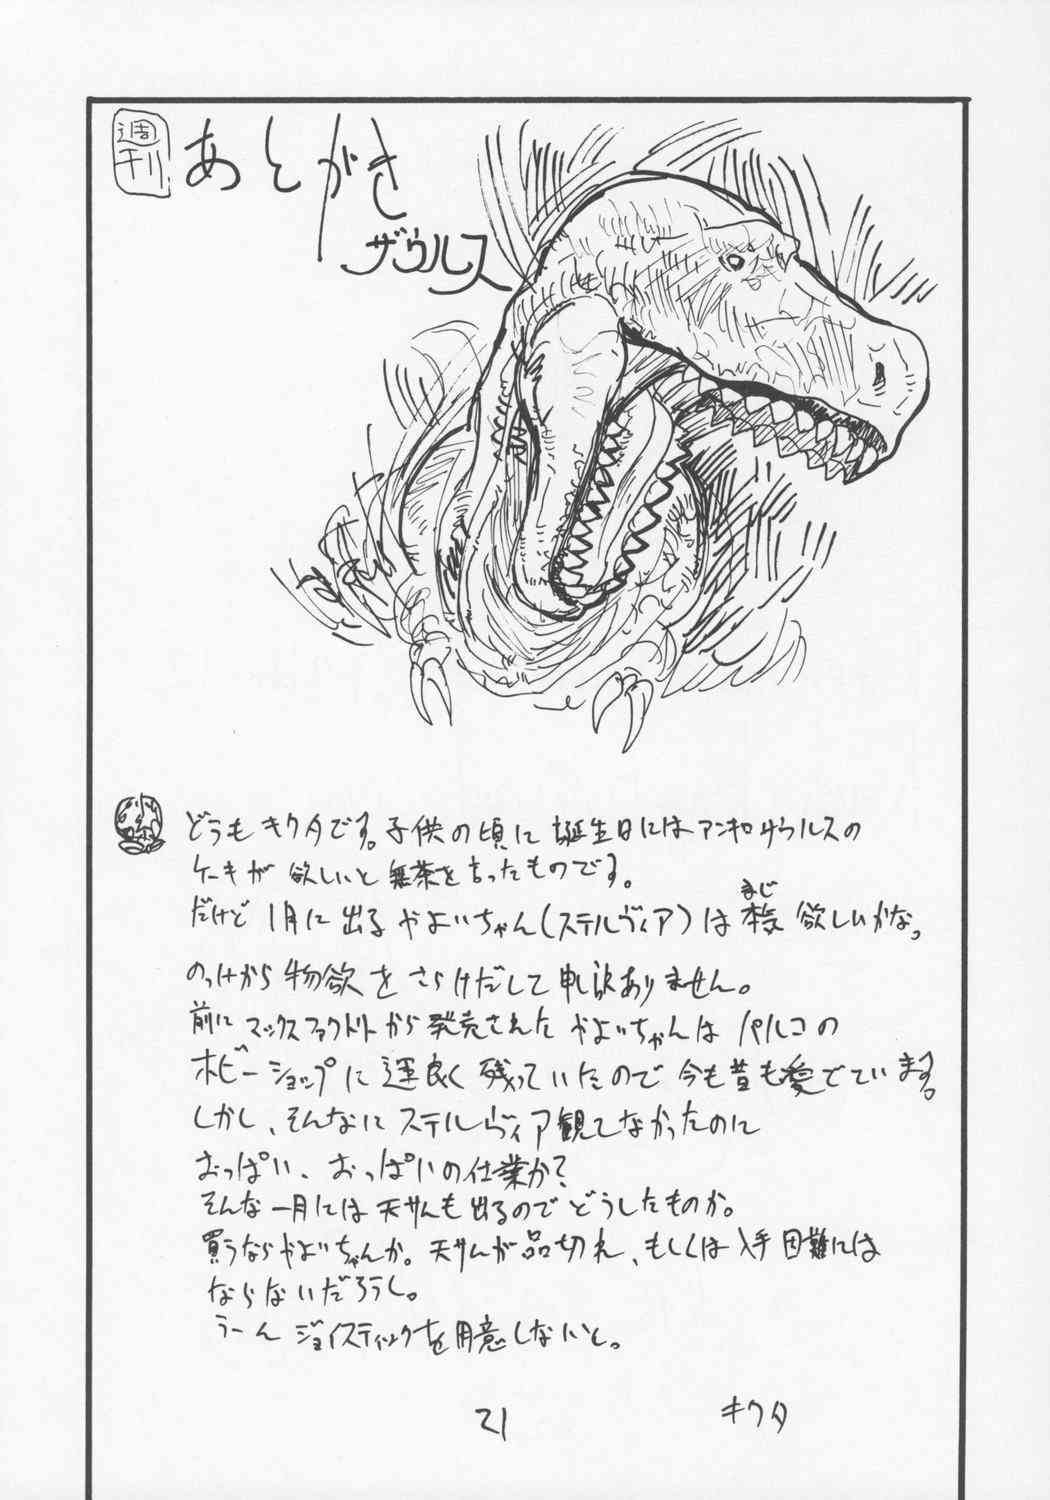 週刊
あとがき
ザウルス
どうもキクタです。子供の頃に誕生日にはアンキロザウルスの
ケーキが欲しいと無茶を言ったものです。
まじ
だけど1月に出るやよいちゃん(ステルヴィア)は本気欲しいかな。
のっけから物欲をさらけだして申し訳ありません。
前にマックスファクトリーから発売されたやよいちゃんはパルコの
ホビーショップに運良く残っていたので今も昔も愛でています。
しかし、そんなにステルヴィア観てなかったのに
おっぱい、おっぱいの仕業か?
そんな一月には天サムも出るのでどうしたものか。
買うならやよいちゃんか。天サムが品切れ、もしくは入手困難には
ならないだろうし。
うーんジョイスティックを用意しないと。
キクタ
21